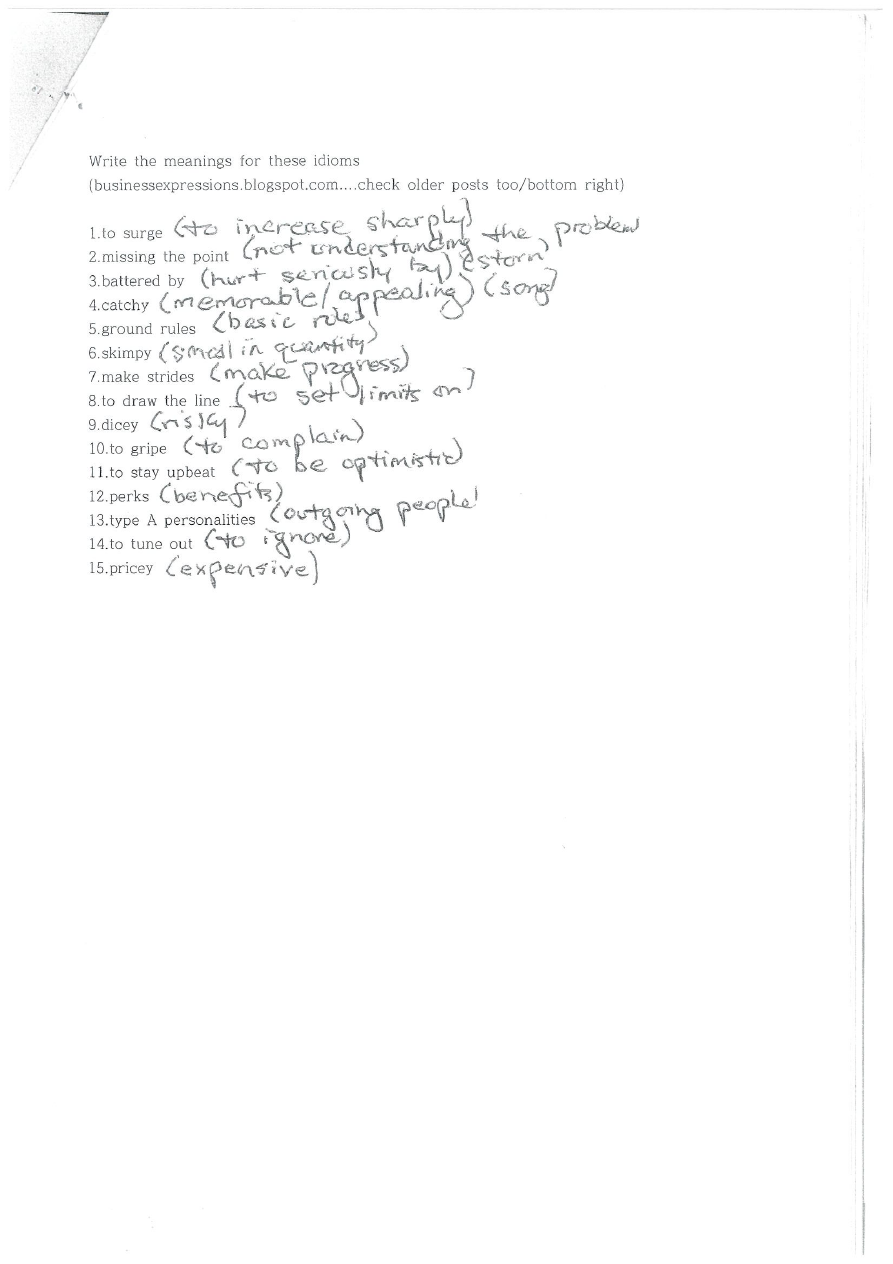 Write the meanings for these idioms
(businessexpressions.blogspot.com....check older posts too/bottom right)
1.to surge (to increase sharply)
2.missing the point (not understanding the problem
3.battered by (hurt seriously by)
4.catchy (memorable/appealing) (song)
5.ground rules (basic rules)
6.skimpy (small in quantity)
7.make strides (make progress)
8.to draw the line (to set limits on)
9.dicey (risky)
10.to gripe (to complain)
11.to stay upbeat (to be optimistic)
12.perks (benefits)
13.type A personalities (outgoing people)
14.to tune out (to ignore)
15.pricey (expensive)